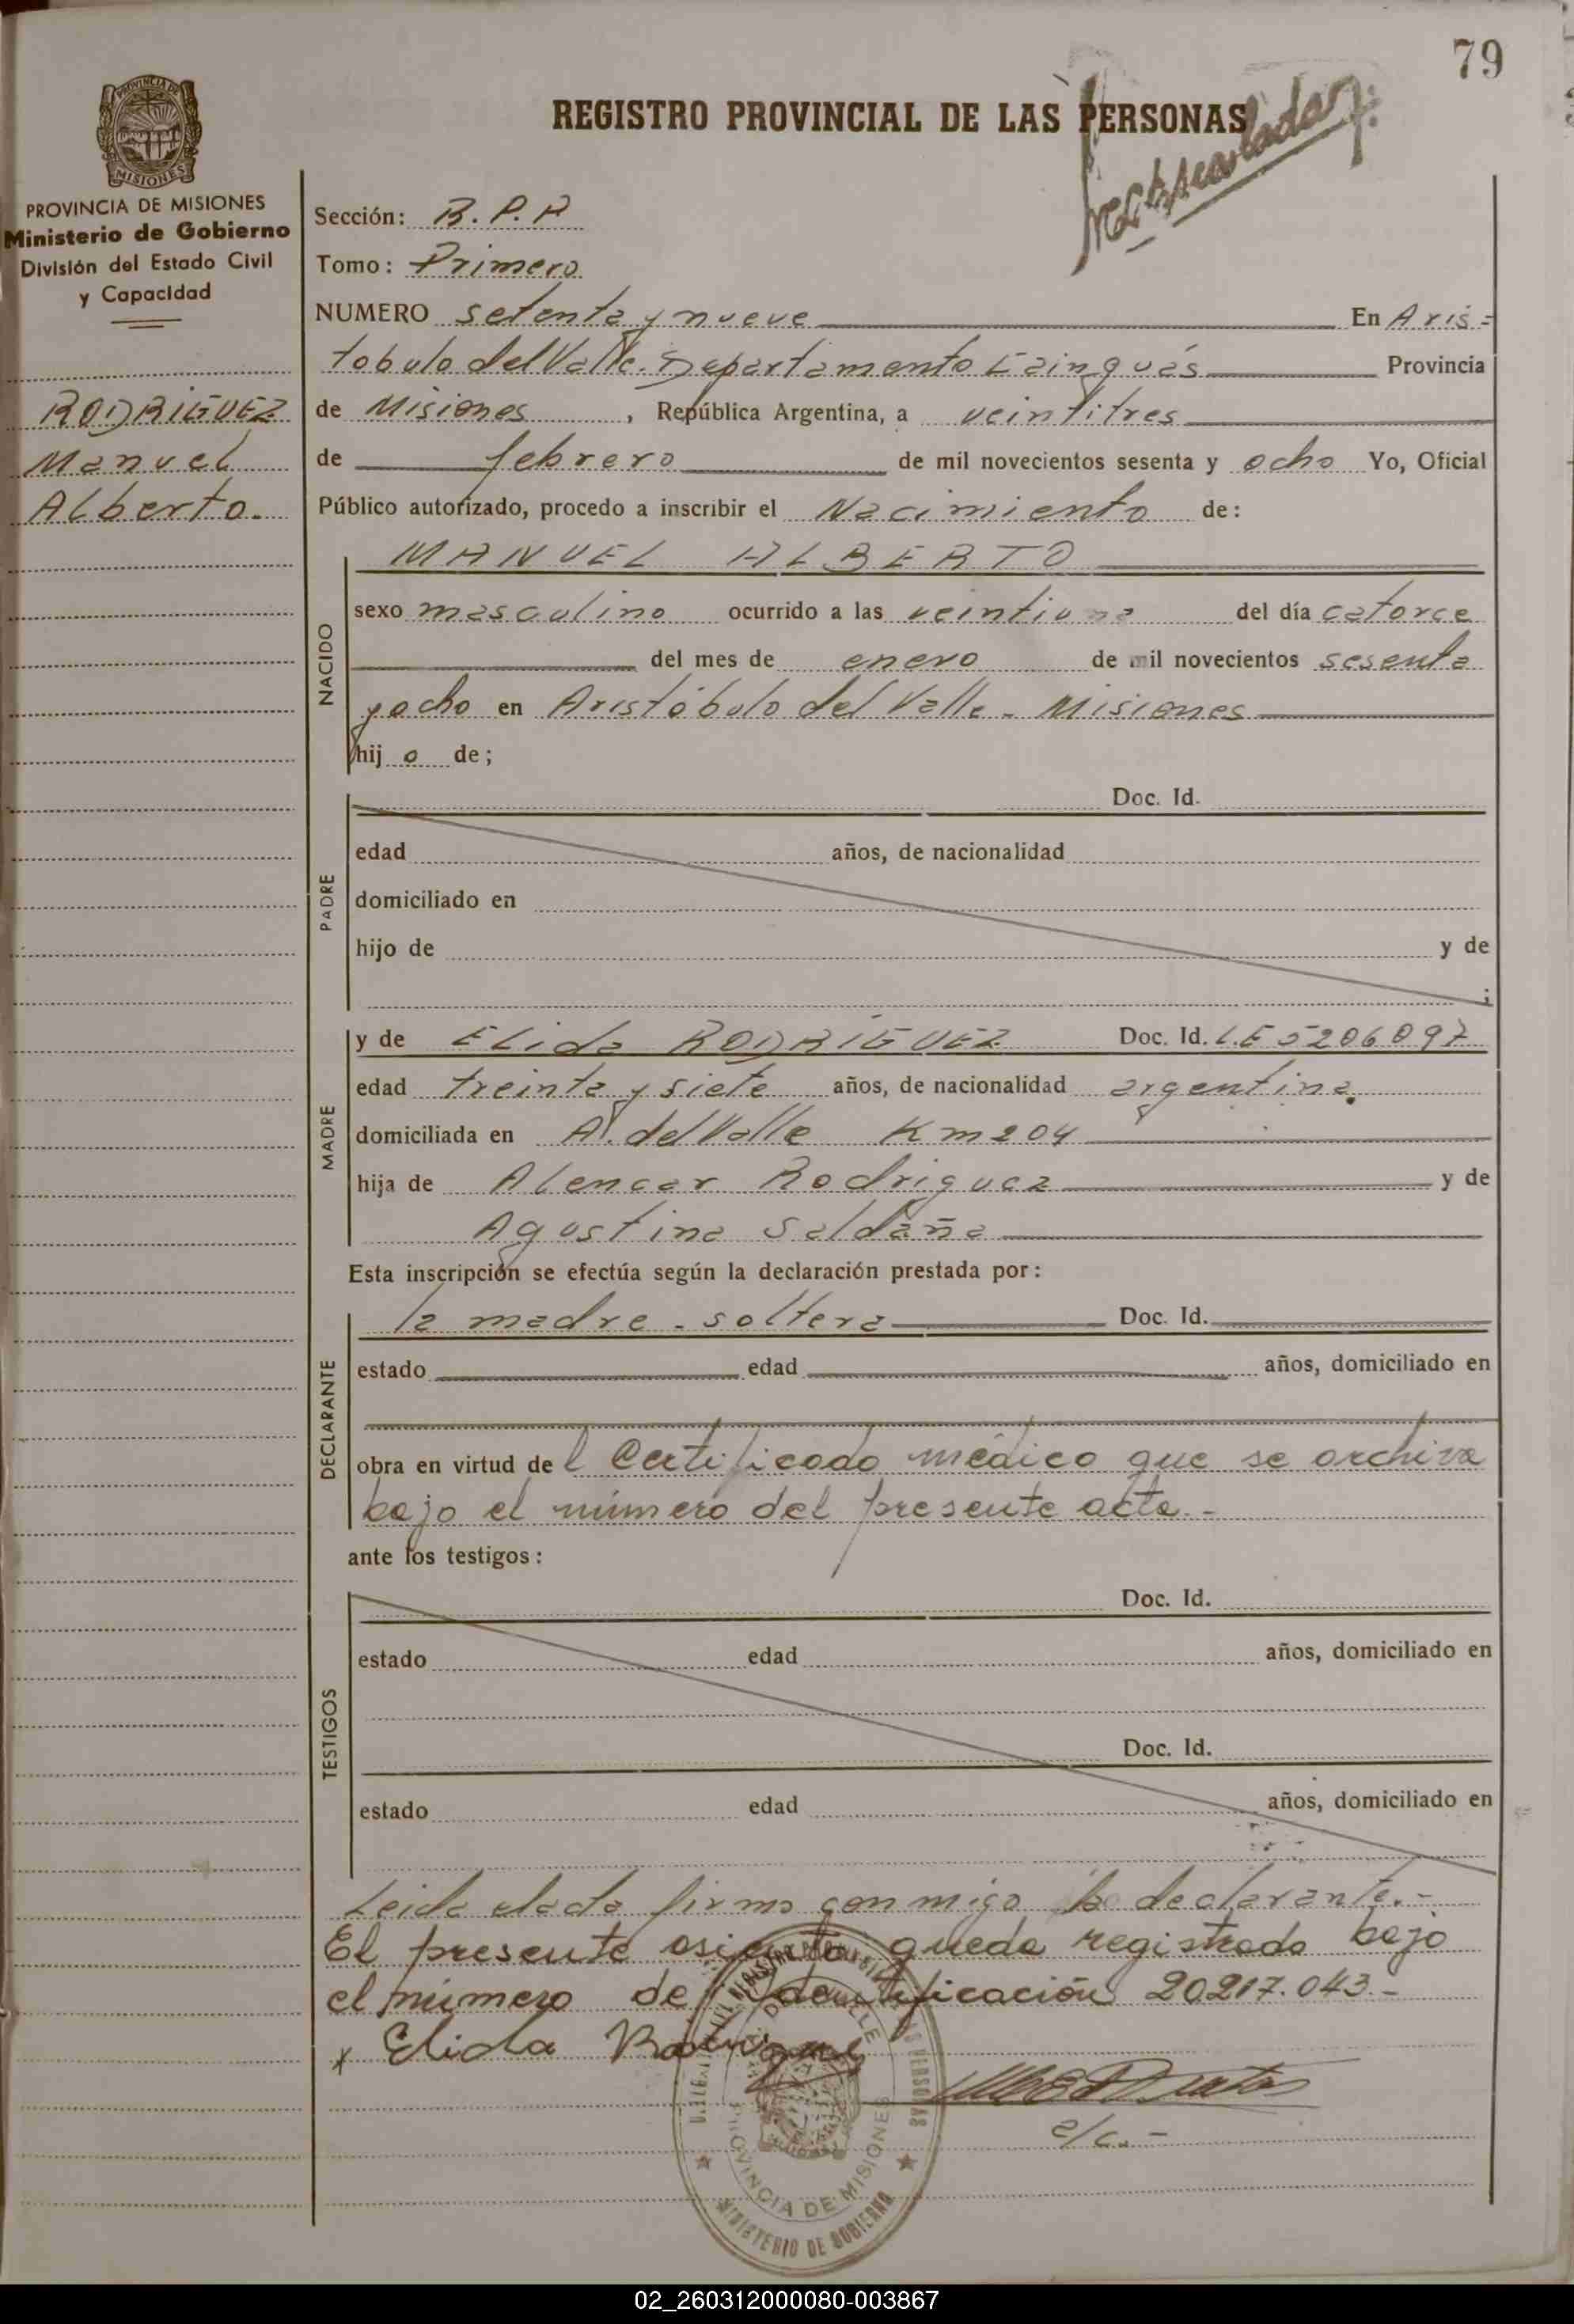 79
REGISTRO PROVINCIAL DE LAS PERSONAS
PROVINCIA DE MISIONES
PROVINCIA DE MISIONES
Ministerio de Gobierno
División del Estado Civil
y Capacidad
RODRIGUEZ
Manuel
Alberto.
Sección: R. P. P
Tomo: Primero
NUMERO setenta y nueve En Aris=
tobulo del Valle. Departamento Cainguás Provincia
de Misiones, República Argentina, a veintitres
de febrero de mil novecientos sesenta y ocho Yo, Oficial
Público autorizado, procedo a inscribir el Nacimiento de:
NACIDO
MANUEL ALBERTO
sexo masculino ocurrido a las veintiuna del día catorce
del mes de enero de mil novecientos sesenta
y ocho en Aristóbulo del Valle - Misiones
hijo de;
PADRE
Doc. Id.
edad años, de nacionalidad
domiciliado en
hijo de y de
;
MADRE
y de Elida RODRIGUEZ Doc. Id. L.E 5206097
edad treinta y siete años, de nacionalidad argentina.
domiciliada en A. del Valle Km 204
hija de Alencar Rodriguez y de
Agustina Saldaña
Esta inscripción se efectúa según la declaración prestada por:
DECLARANTE
la madre - soltera Doc. Id.
estado edad años, domiciliado en
obra en virtud del Certificado médico que se archiva
bajo el número del presente acta.-
ante los testigos:
TESTIGOS
Doc. Id.
estado edad años, domiciliado en
Doc. Id.
estado edad años, domiciliado en
Leida el acta firma conmigo la declarante.-
El presente asiento queda registrado bajo
el número de identificación 20.217.043.-
x Elida Rodriguez
a/c.-
PROVINCIA DE MISIONES
MINISTERIO DE GOBIERNO
02_260312000080-003867